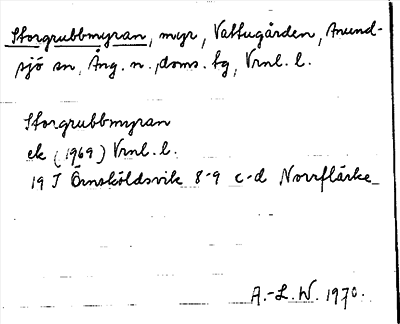 Storgrubbmyran, myr, Vattugården, Anund-
sjö sn, Ång. n. doms. tg, Vrnl. l.
Storgrubbmyran
ek (1969) Vrnl. l.
19 J Örnsköldsvik 8-9 c-d Norrflärke
A.-L. W. 1970.